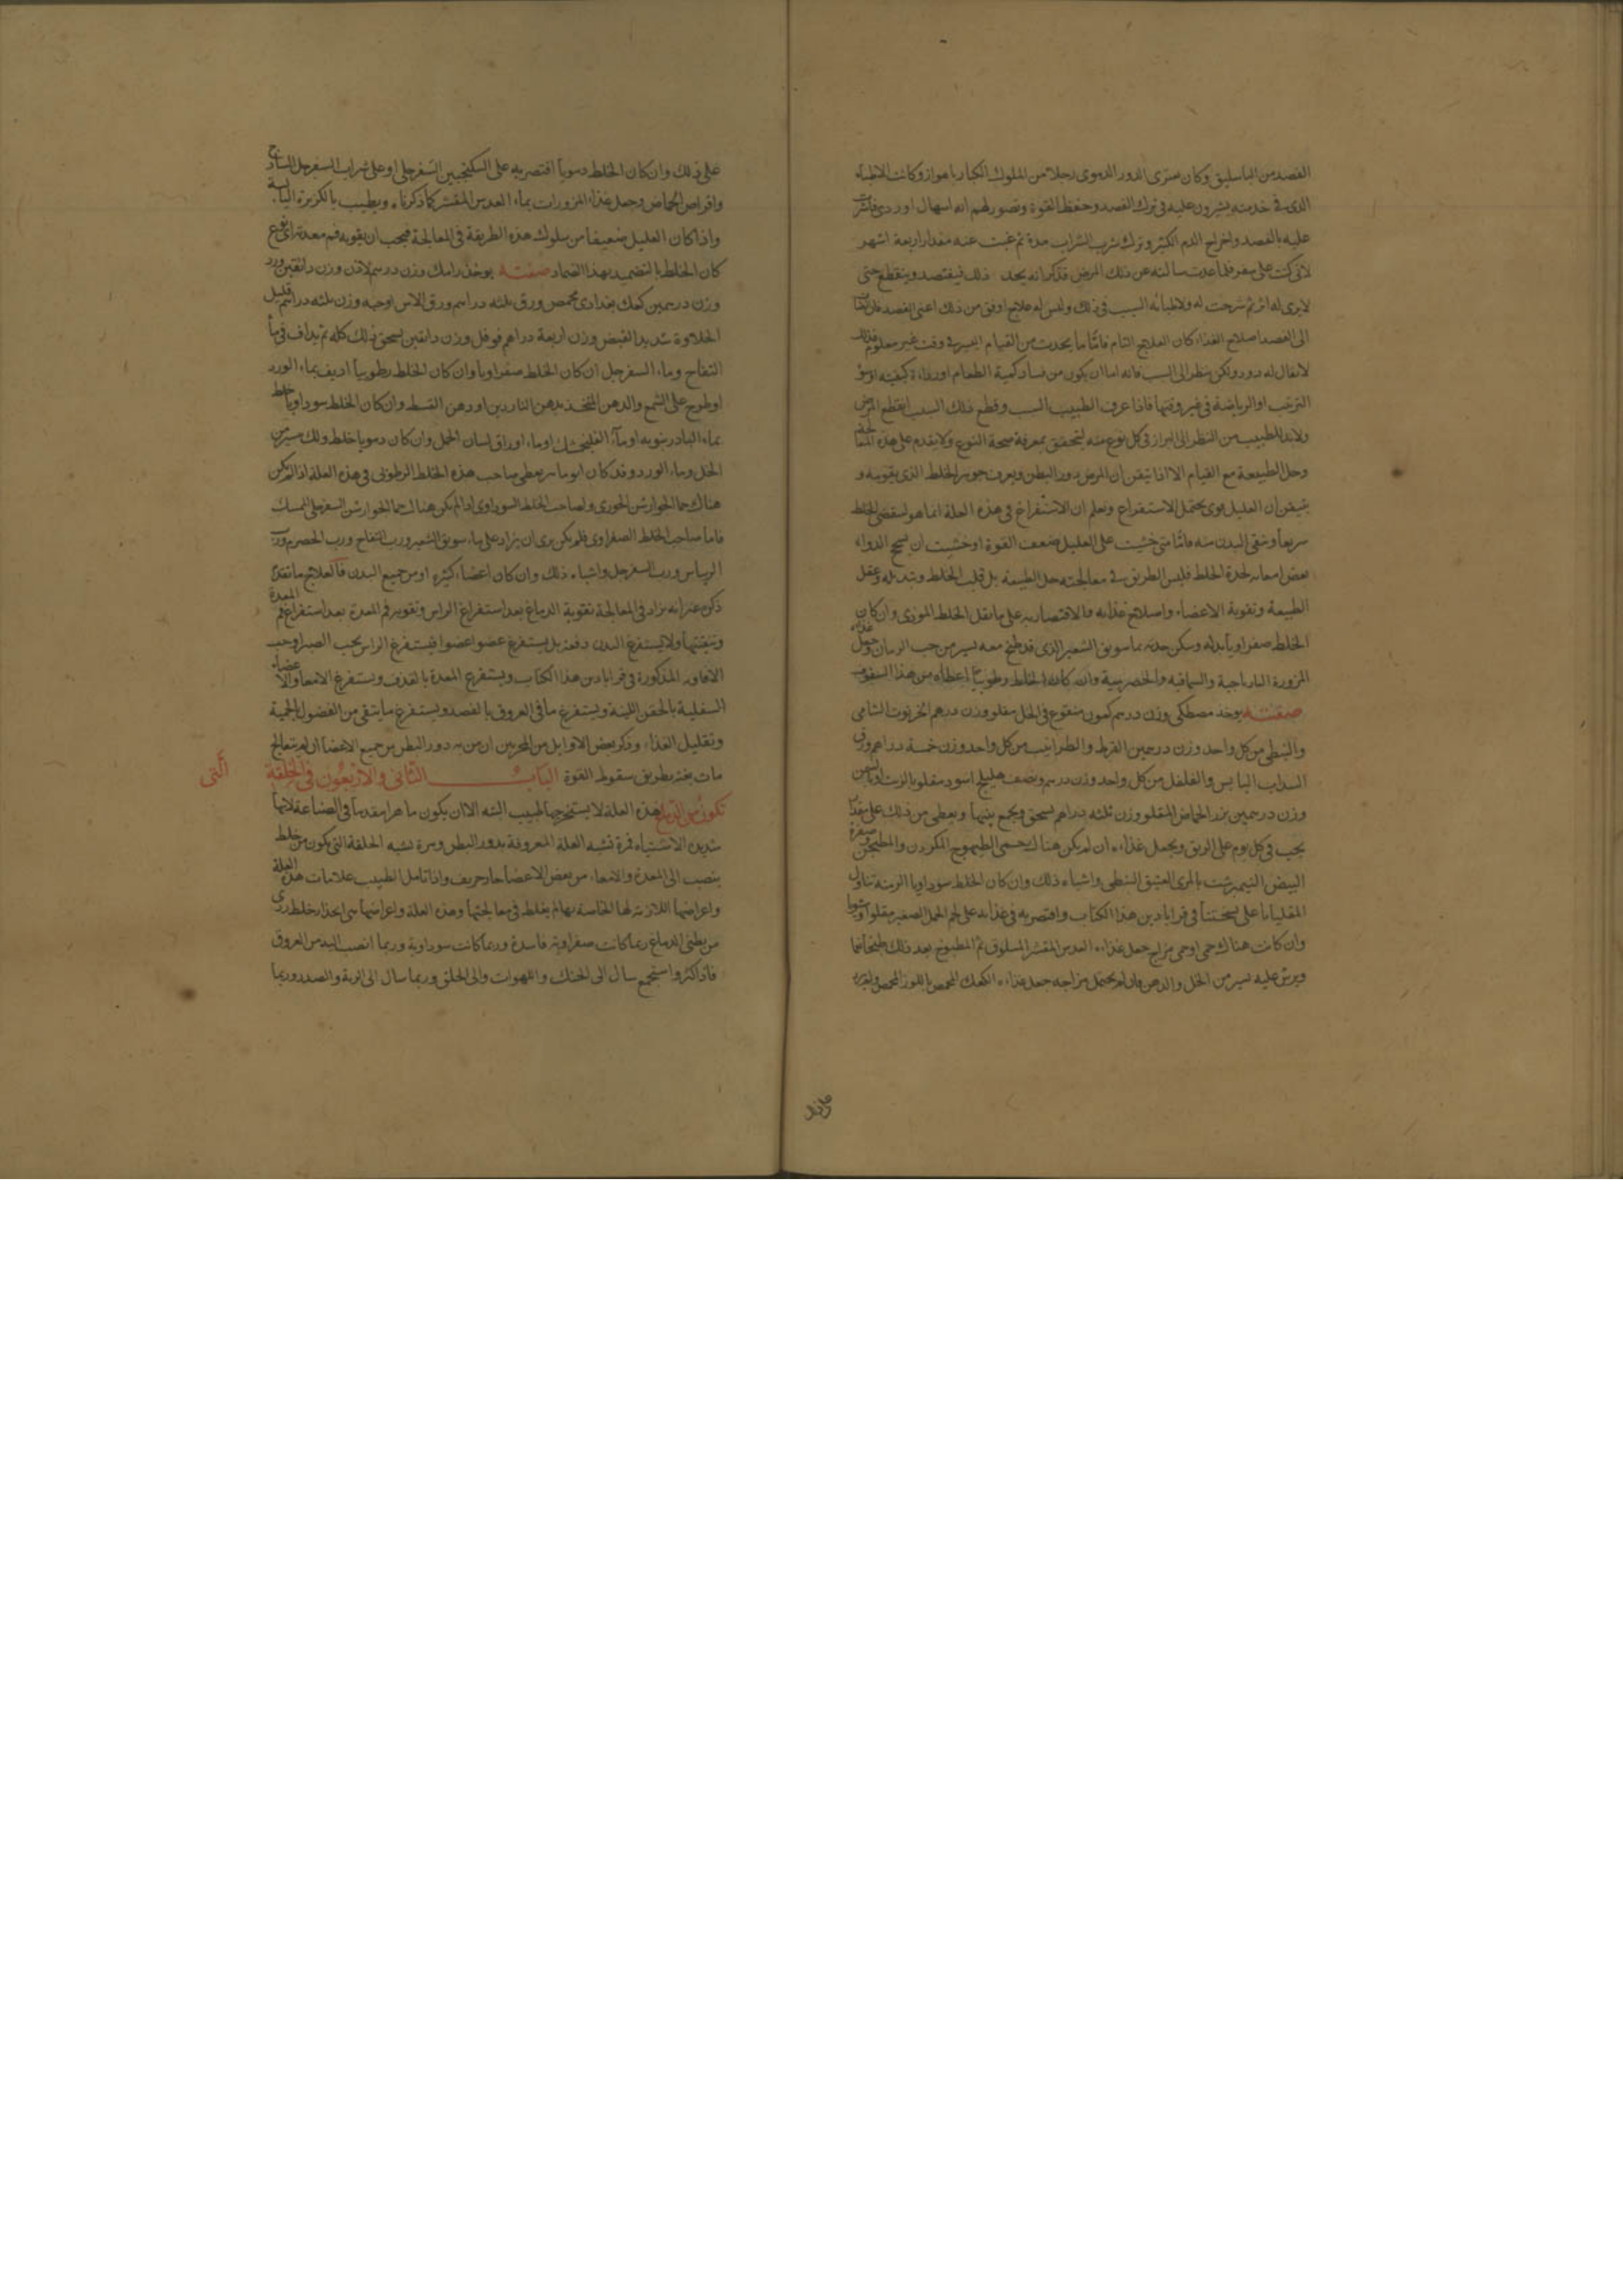 الفصد من الباسليق وكان معترى الدور الدموى رجلا من الملوك الكبار باهواز وكانت الاطباء
الذى فى خدمته يشيرون عليه فى ترك الفصد وحفظ القوة وتصور لهم انه اسهال اوردى فاشرت
عليه بالفصد واخراج الدم الكثير وترك شرب الشراب مدة ثم غبت عنه مقدار اربعة اشهر
لانى كنت على سفر فلما عدت سالته عن ذلك المرض فذكر انه يجد ذلك فيفتصد وينقطع حتى
لا يرى له اثر ثم شرحت له ولاطبائه السبب فى ذلك وليس له علاج اوفق من ذلك اعنى الفصد فان
الى الفصد اصلاح الغذاء كان العلاج التام فامّا ما يحدث من القيام اليسير فى وقت غير معلوم فذلك
لا يقال له دور ولكن ينظر الى السبب فانه اما ان يكون من فساد كمية الطعام او رداءة كيفيته او سوء
الترتيب او الرياضة فى غير وقتها فاذا عرف الطبيب السبب وقطع ذلك السبب انقطع المرض
ولا بد للطبيب من النظر الى البراز فى كل نوع منه ليتحقق بمعرفة صحة النوع ولا يقدم على هذه
وحل الطبيعة مع القيام الا اذا تيقن ان المرض دور البطن ويعرف جوهر الخلط الذى يقويه و
يتيقن ان العليل قوى يحتمل الاستفراغ ونعلم ان الاستفراغ فى هذه العلة انما هو لينقضى الخلط
سريعا وينقى البدن منه فامّا متى خشيت على العليل ضعف القوة او خشيت ان يسحج الدواء
بعض امعائه لحدة الخلط فليس الطريق فى معالجته حل الطبيعة بل قلب الخلط وتبديله وعقل
الطبيعة وتقوية الاعضاء واصلاح غذائه والاقتصار به على ما نقل الخلط الموذى وان كان
الخلط صفراويا بدله وسكن حدته بماء سويق الشعير الذى قد طبخ معه يسير من حب الرمان وجعل غذاءه
المزورة النارباجية والسماقية والحصرمية وان كان الخلط رطوبيا اعطاه من هذا السفوف
صفته يوخذ مصطكى وزن درهم كمون منقوع فى الخل مقلو وزن درهم الخرنوب الشامى
والنبطى من كل واحد وزن درهمين القرط والطراثيث من كل واحد وزن خمسة دراهم ورق
السذاب اليابس والفلفل من كل واحد وزن درهم ونصف هليلج اسود مقلو بالزيت او بالسمن
وزن درهمين بزر الحماض المقلو وزن ثلثه دراهم يسحق ويجمع بينها ويعطى من ذلك على مقدار
يجب فى كل يوم على الريق ويجعل غذاءه ان لم يكن هناك حمى الطيهوج المكردن والمطجن وصفرة
البيض النيمبرشت بالمرى العتيق النبطى واشباه ذلك وان كان الخلط سوداويا الزمته تناول
المقلياثا على نسختنا فى قراباذين هذا الكتاب واقتصر به فى غذائه على لحم الحمل الصغير مقلوا ومشويا
وان كانت هناك حمى او حمى مزاج جعل غذاءه العدس المقشر المسلوق ثم المطبوخ بعد ذلك طبخا تاما
ويرش عليه يسير من الخل والدهن وان لم يحتمل مزاجه جعل غذاءه الكعك المحمص باللوز المحمص
على ذلك وان كان الخلط دمويا اقتصر به على السكنجبين السفرجلى او على شراب السفرجل الساذج
واقراص الحماض وجعل غذاء المزورات بماء العدس المقشر كما ذكرناه ويطيب بالكزبرة اليابسة
واذا كان العليل ضعيفا من سلوك هذه الطريقة فى المعالجة فيجب ان يقويه فم معدته اى نوع
كان الخلط بالتضميد بهذا الضماد صفته يوخذ رامك وزن درهم لاذن وزن دانقين ورد
وزن درهمين كعك بغدادى محمص ورق ثلثه دراهم ورق الاس او حبه وزن ثلثه دراهم قليل
الحلاوة شديد القبض وزن اربعة دراهم فوفل وزن دانقين يسحق ذلك كله ثم يداف فى ماء
التفاح وماء السفرجل ان كان الخلط صفراويا وان كان الخلط رطوبيا اديف بماء الورد
او طرح على الشمع والدهن المتخذ بدهن الناردين او دهن القسط وان كان الخلط سوداويا خلط
بماء البادرنبويه او ماء الفلنجمشك او ماء اوراق لسان الحمل وان كان دمويا خلط ذلك بيسير من
الخل وماء الورد وقد كان ابو ماهر يعطى صاحب هذه الخلط الرطوبى فى هذه العلة اذا لم يكن
هناك حمى الجوارشن الخوزى ولصاحب الخلط السوداوى اذا لم يكن هناك حمى الجوارشن السفرجلى الممسك
فاما صاحب الخلط الصفراوى فلم يكن يرى ان يزاد على ماء سويق الشعير ورب التفاح ورب الحصرم ورب
الريباس ورب السفرجل واشباه ذلك وان كان اعضاء كثيرة او من جميع البدن فالعلاج ما تقدم
ذكره غير انه يزاد فى المعالجة تقوية الدماغ بعد استفراغ الراس وتقوية فم المعدة بعد استفراغ فم المعدة
وتنقيتها ولا يستفرغ البدن دفعة بل يستفرغ عضوا عضوا فيستفرغ الراس بحب الصبر وحب
الافاويه المذكورة فى قراباذين هذا الكتاب ويستفرغ المعدة بالقذف ويستفرغ الامعاء والاعضاء
السفلية بالحقن اللينة ويستفرغ ما فى العروق بالفصد ويستفرغ ما يتبقى من الفضول بالحمية
وتقليل الغذاء وذكر بعض الاوايل من المجربين ان من به دور البطن من جميع الاعضاء ان لم يتعالج
مات بغتة بطريق سقوط القوة الباب الثانى والاربعون فى الخلفة التى
تكون من الدماغ هذه العلة لا يستخرجها طبيب البته الا ان يكون ماهرا مقدما فى الصناعة لانها
شديدة الاشتباه فمرة تشبه العلة المعروفة بدور البطن ومرة تشبه الخلفة التى يكون من خلط
ينصب الى المعدة والامعاء من بعض الاعضاء حاد حريف واذا تامل الطبيب علامات هذه العلة
واعراضها اللازمة لها الخاصة بها لم يغلط فى معالجتها وهذه العلة واعراضها هى انحدار خلط ردى
من بطنى الدماغ ربما كانت صفراوية فاسدة وربما كانت سوداوية وربما انصب اليه من العروق
فاذا كثر واستجمع سال الى الحنك واللهوات والى الحلق وربما سال الى الرية والصدر وربما